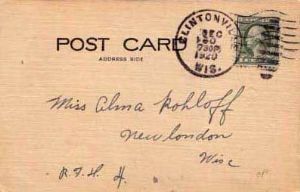 POST CARD
ADDRESS SIDE
CLINTONVILLE
DEC
730PM
1920
WIS.
Miss Alma Kohloff
New London
Wisc